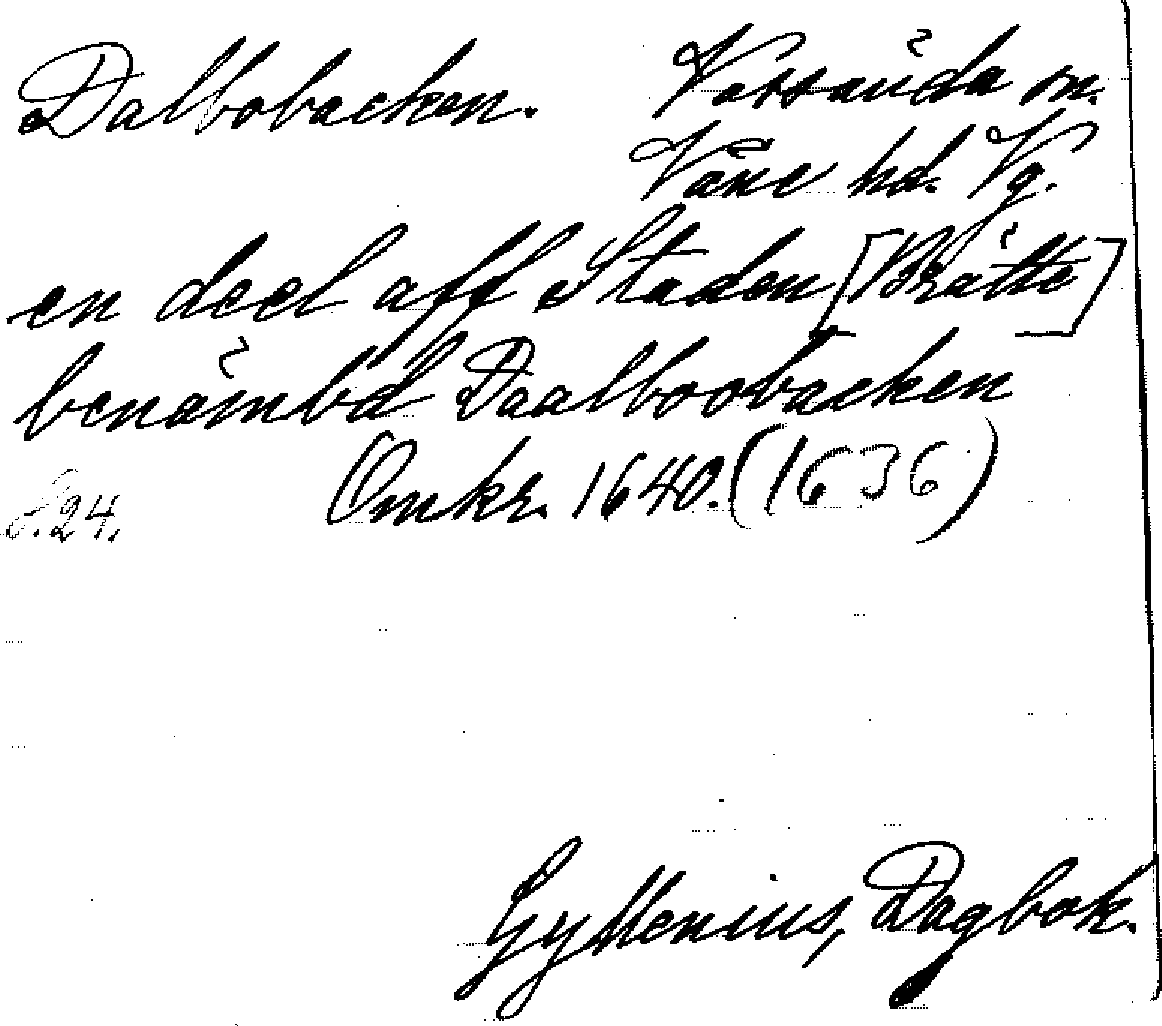 Dalbobacken. Vassända sn.
Väne hd. Vg.
en deel aff Staden [Brätte]
benämbd Daalboobacken
S.24. Omkr. 1640. (1636)
Gyllenius, Dagbok.